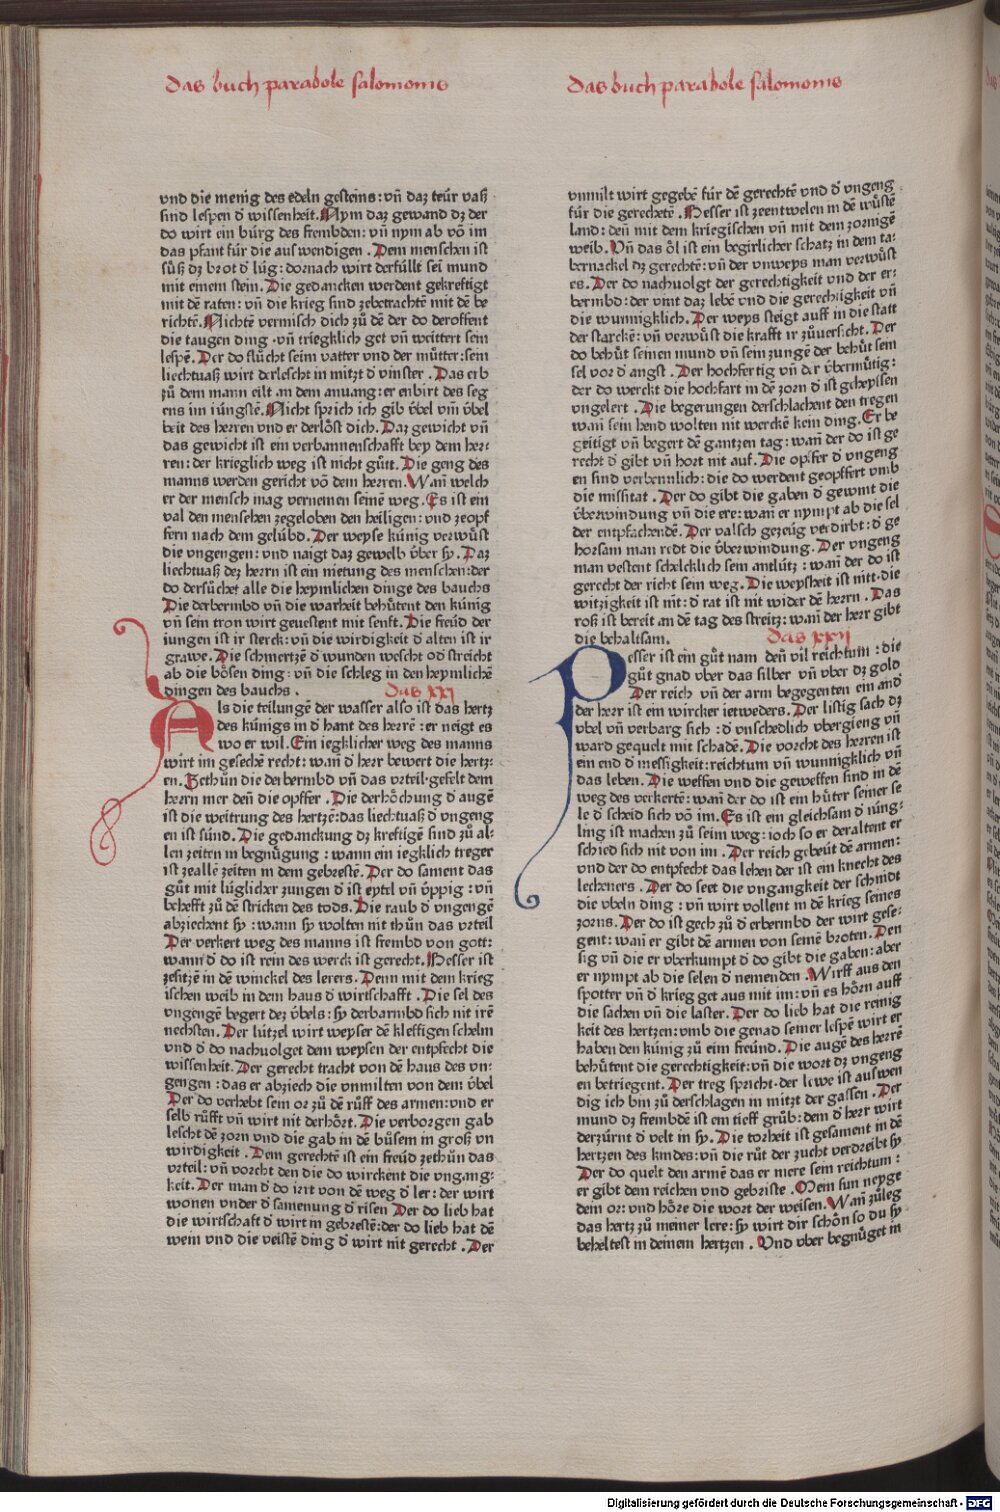 das buch parabole salomonis
vnd die menig des edeln gesteins: vñ daz teúr vaß
sind lespen d̓ wissenheit. Nym daz gewand dz der
do wirt ein búrg des frembden: vñ nym ab võ im
das pfant fúr die auswendigen. Dem menschen ist
sússz dz brot d̓ lúg: dornach wirt derfúllt sei mund
mit einem stein. Die gedancken werdent gekreftigt
mit dē raten: vñ die krieg sind zebetrachtē mit dē be
richtē. Nichtē vermisch dich zů dē der do deroffent
die taugen ding · vñ triegklich get vñ weittert sein
lespē. Der do flůcht seim vatter vnd der můtter: sein
liechtuaß wirt derlescht in mitzt d̓ vinster. Das erb
zů dem mann eilt an dem anuang: er enbirt des seg
ens im iúngstē. Nicht sprich ich gib v̈bel vm̄ v̈bel
beit des herren vnd er derlöst dich. Daz gewicht vñ
das gewicht ist ein verbannenschafft bey dem her⸗
ren: der krieglich weg ist nicht gůtt. Die geng des
manns werden gericht võ dem herren. Wañ welch
er der mensch mag vernemen seinē weg. Es ist ein
val den menschen zegeloben den heiligen: vnd zeopf
fern nach dem gelúbd. Der weyse kúnig verwúst
die vngengen: vnd naigt daz gewelb v̈ber sy. Daz
liechtuaß dez herrn ist ein nietung des menschen: der
do dersůchet alle die heymlichen dinge des bauchs
Die derbermbd vñ die warheit behůtent den kúnig
vñ sein tron wirt geuestent mit senft. Die freúd der
iungen ist ir sterck: vñ die wirdigkeit d̓ alten ist ir
grawe. Die schmertzē d̓ wunden wescht od̓ streicht
ab die bösen ding: vñ die schleg in den heymlichē
dingen des bauchs.
das XXI
Als die teilungē der wasser also ist das hertz
des kúnigs in d̓ hant des herrē: er neigt es
wo er wil. Ein iegklicher weg des manns
wirt im gesechē recht: wañ d̓ herr bewert die hertz:
en. Zethůn die derbermbd vñ das vrteil · gefelt dem
herrn mer deñ die opffer. Die derhöchung d̓ augē
ist die weitrung des hertzē: das liechtuaß d̓ vngeng
en ist súnd. Die gedanckung dz kreftigē sind zů al⸗
len zeiten in begnúgung: wann ein iegklich treger
ist zeallē zeiten in dem gebrestē. Der do sament das
gůt mit lúglicher zungen d̓ ist eytel vñ v̈ppig: vñ
behefft zů dē stricken des tods. Die raub d̓ vngengē
abziechent sy: wann sy wolten nit thůn das vrteil
Der verkert weg des manns ist frembd von gott:
wann d̓ do ist rein des werck ist gerecht. Besser ist
zesitzē in dē winckel des lerers. Denn mit dem krieg
ischen weib in dem haus d̓ wirtschafft. Die sel des
vngengē begert dez v̈bels: sy derbarmbd sich nit irē
nechsten. Der lútzel wirt weyser dē kleffigen schelm
vnd d̓ do nachuolget dem weysen der entpfecht die
wissenheit. Der gerecht tracht von dē haus des vn⸗
gengen: das er abziech die vnmilten von dem v̈bel
Der do verhebt sein or zů dē růff des armen: vnd er
selb růfft vñ wirt nit derhört. Die verborgen gab
lescht dē zorn vnd die gab in dē bůsem in groß vn
wirdigkeit. Dem gerechtē ist ein freúd zethůn das
vrteil: vñ vorcht den die do wirckent die vngang:
keit. Der man d̓ do irrt von dē weg d̓ ler: der wirt
wonen vnder d̓ samenung d̓ risen Der do lieb hat
die wirtschaft d̓ wirt in gebrestē: der do lieb hat dē
wein vnd die veistē ding d̓ wirt nit gerecht. Der
das buch parabole salomonis
vnmilt wirt gegebē fúr dē gerechtē vnd d̓ vngeng
fúr die gerechetē. Besser ist zeentwelen in dē wústē
land: deñ mit dem kriegischen vñ mit dem zornigē
weib. Vñ das öl ist ein begirlicher schatz in dem ta:
bernackel dz gerechtē: vñ der vnweys man verwúst
es. Der do nachuolgt der gerechtigkeit vnd der er⸗
bermbd: der vint daz lebē vnd die gerechtigkeit vñ
die wunnigklich. Der weys steigt auff in die statt
der starckē: vñ verwúst die krafft ir zůuersicht. Der
do behút seinen mund vñ sein zungē der behút sein
sel vor d̓ angst. Der hochfertig vñ der v̈bermůtig:
der do werckt die hochfart in dē zorn d̓ ist geheyssen
vngelert. Die begerungen derschlachent den tregen
wañ sein hend wolten nit werckē kein ding. Er be
geitigt vñ begert dē gantzen tag: wañ der do ist ge
recht d̓ gibt vñ hort nit auf. Die opffer d̓ vngeng
en sind verbennlich: die do werdent geopffert vmb
die missitat. Der do gibt die gaben d̓ gewint die
v̈berwindung vñ die ere: wañ er nympt ab die sel
der entpfachendē. Der valsch gezeúg verdirbt: d̓ ge
horsam man redt die v̈berwindung. Der vngeng
man vestent schelcklich sein antlútz: wañ der do ist
gerecht der richt sein weg. Die weyßheit ist nitt · die
witzigkeit ist nit: d̓ rat ist nit wider dē herrn. Das
roß ist bereit an dē tag des streitz: wañ der herr gibt
die behaltsam.
das XXII
Besser ist ein gůt nam deñ vil reichtum: die
gůt gnad vber das silber vñ vber dz gold
Der reich vñ der arm begegenten ein and̓
der herr ist ein wircker ietweders. Der listig sach dz
vbel vñ verbarg sich: d̓ vnschedlich vbergieng vñ
ward gequelt mit schadē. Die vorcht des herren ist
ein end d̓ messigkeit: reichtum vñ wunnigklich vñ
das leben. Die weffen vnd die geweffen sind in dē
weg des verkertē: wañ der do ist ein húter seiner se
le d̓ scheid sich võ im. Es ist ein gleichsam d̓ iúng:
ling ist machen zů seim weg: ioch so er deraltent er
schied sich nit von im. Der reich gebeút dē armen:
vnd der do entpfecht das lehen der ist ein knecht des
lechners. Der do seet die vngangkeit der schnidt
die vbeln ding: vñ wirt vollent in dē krieg seines
zorns. Der do ist gech zů d̓ erbermbd der wirt gese⸗
gent: wañ er gibt dē armen von seinē broten. Den
sig vñ die er vberkumpt d̓ do gibt die gaben: aber
er nympt ab die selen d̓ nemenden. Wirff aus den
spotter vñ d̓ krieg get aus mit im: vñ es hörn auff
die sachen vñ die laster. Der do lieb hat die reinig
keit des hertzen: vmb die genad seiner lespē wirt er
haben den kúnig zů eim freúnd. Die augē des herrē
behůtent die gerechtigkeit: vñ die wort dz vngeng
en betriegent. Der treg spricht · der lewe ist auswen
dig ich bin zů derschlagen in mitzt der gassen. Der
mund dz frembdē ist ein tieff grůb: dem d̓ herr wirt
derzúrnt d̓ velt in sy. Die torheit ist gesament in dē
hertzen des kindes: vñ die růt der zucht verdreibt sy
Der do quelt den armē das er mere sein reichtum:
er gibt dem reichen vnd gebriste. Mein sun neyge
dein or: vnd höre die wort der weisen. Wañ zůleg
das hertz zů meiner lere: sy wirt dir schön so du sy
beheltest in deinem hertzen. Vnd vber begnúget in
Digitalisierung gefördert durch die Deutsche Forschungsgemeinschaft - DFG